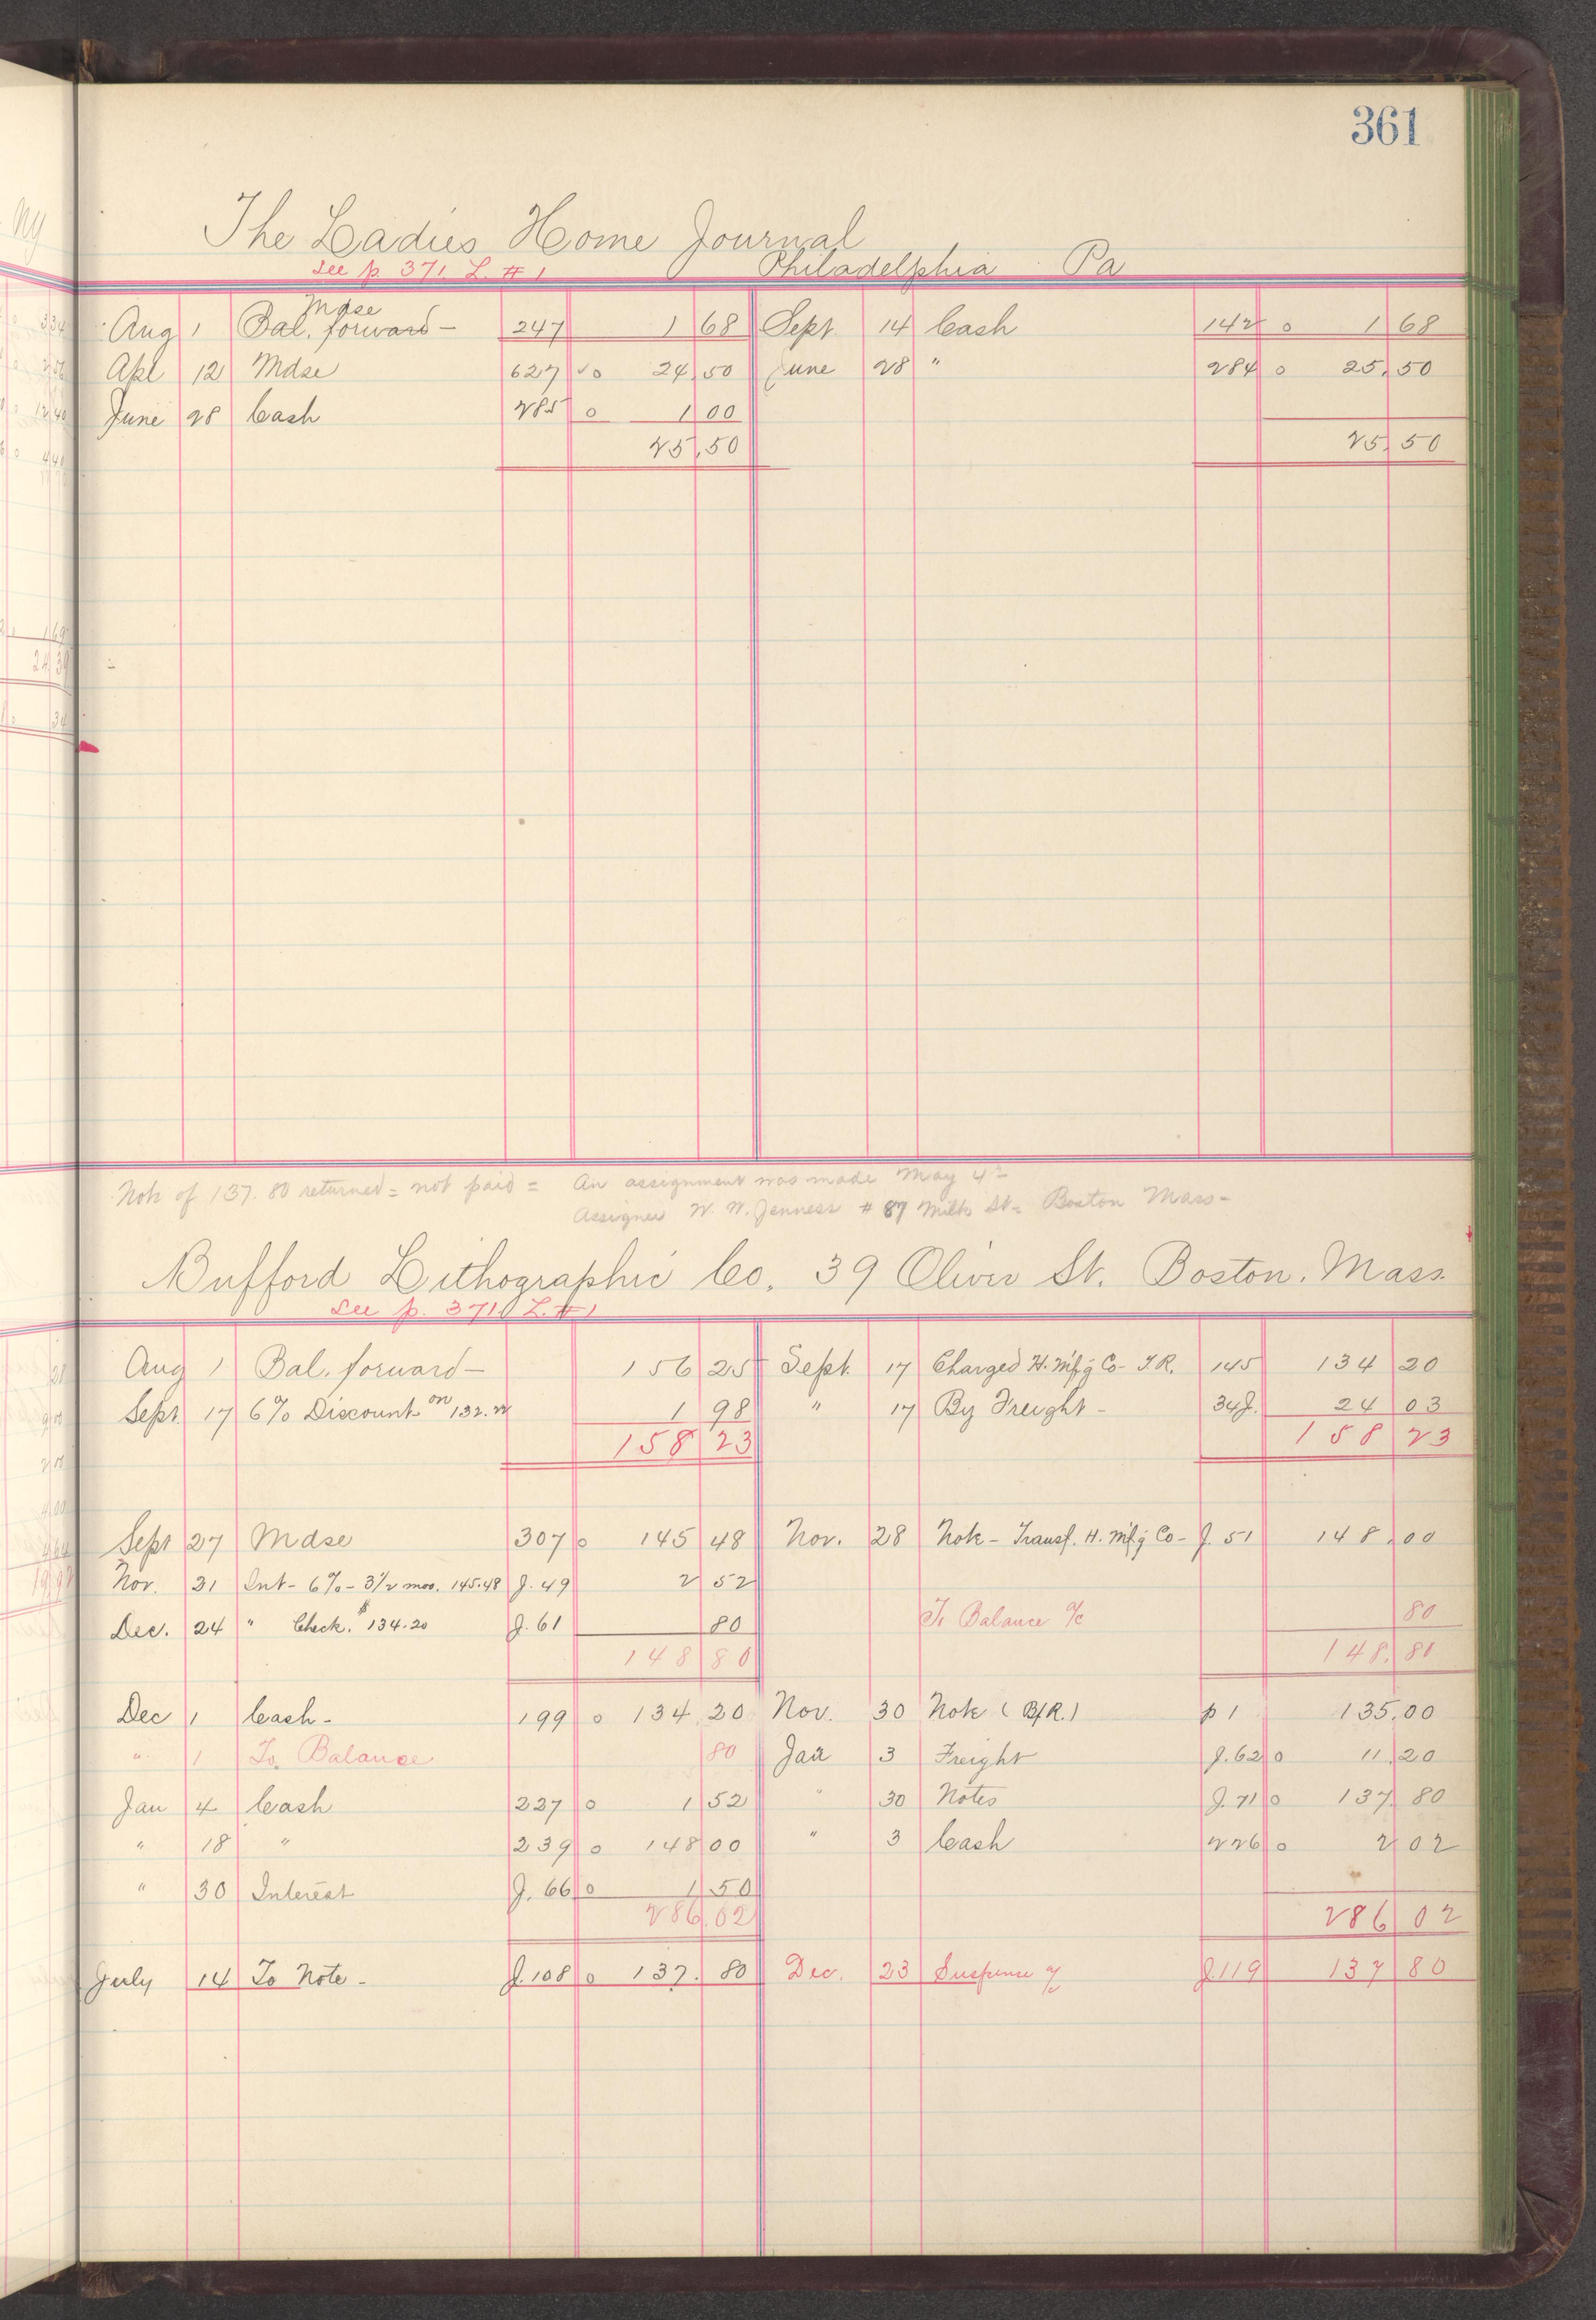 361
The Ladies Home Journal
see p 371. L. #1 Philadelphia Pa
Mdse
Aug 1 Bal. forward — 247 1 68 Sept. 14 Cash 142 o 1 68
Apl 12 Mdse 627 √o 24,50 June 28 " 284 o 25,50
June 28 Cash 285 o 1 00
25,50 25,50
Note of 137.80 returned = not paid = An assignment was made May 4th
Assignee W. W. Jenness # 87 Milk St = Boston Mass -
Bufford Lithographic Co. 39 Oliver St. Boston. Mass.
See p. 371 L. #1
Aug 1 Bal. forward — 156 25 Sept. 17 Charged H. Mfg Co - 145 134 20
Sept. 17 6% Discount on 132. 1 98 " 17 By Freight - 34J. 24 03
158 23 158 23
Sept 27 Mdse 307 o 145 48 Nov. 28 Note - Transf. H. Mfg Co - J. 51 148,00
Nov. 21 Int - 6% - 3 1/2 mos. 145.48 J. 49 2 52
Dec. 24 " Check. $134.20 J. 61 80 To Balance a/c 80
148 80 148. 80
Dec 1 Cash - 199 o 134 20 Nov. 30 Note (B/R.) p 1 135,00
" 1 To Balance 80 Jan 3 Freight J. 62 o 11,20
Jan 4 Cash 227 o 1 52 " 30 Notes J. 71 o 137 80
" 18 " 239 o 148 00 " 3 Cash 226 o 2 02
" 30 Interest J. 66 o 1 50
286.02 286 02
July 14 To Note - J. 108 o 137. 80 Dec. 23 Suspense a/c J 119 137 80